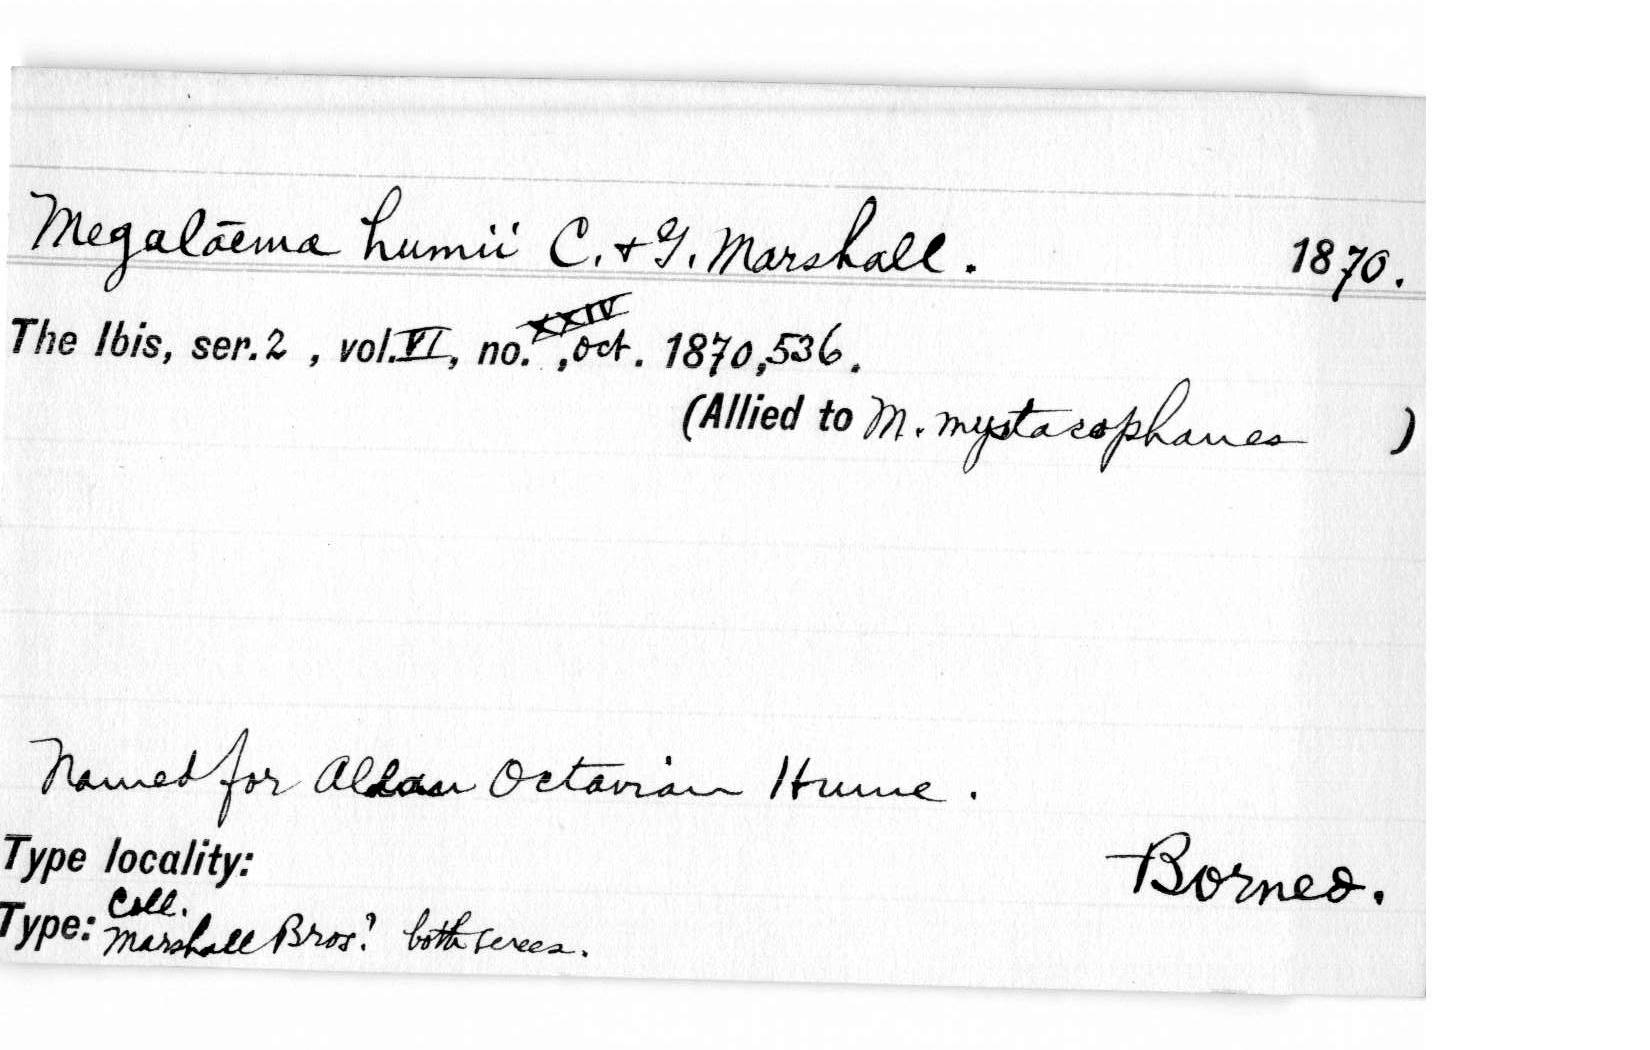 Megalāema humii C. + G. Marshall. 1870.
The Ibis, ser. 2 , vol. VI, no. XXIV, oct. 1870, 536.
(Allied to M. mystacophanes )
Named for Allan Octavian Hume.
Type locality: Borneo.
Type: Coll. Marshall Bros.? both sexes.